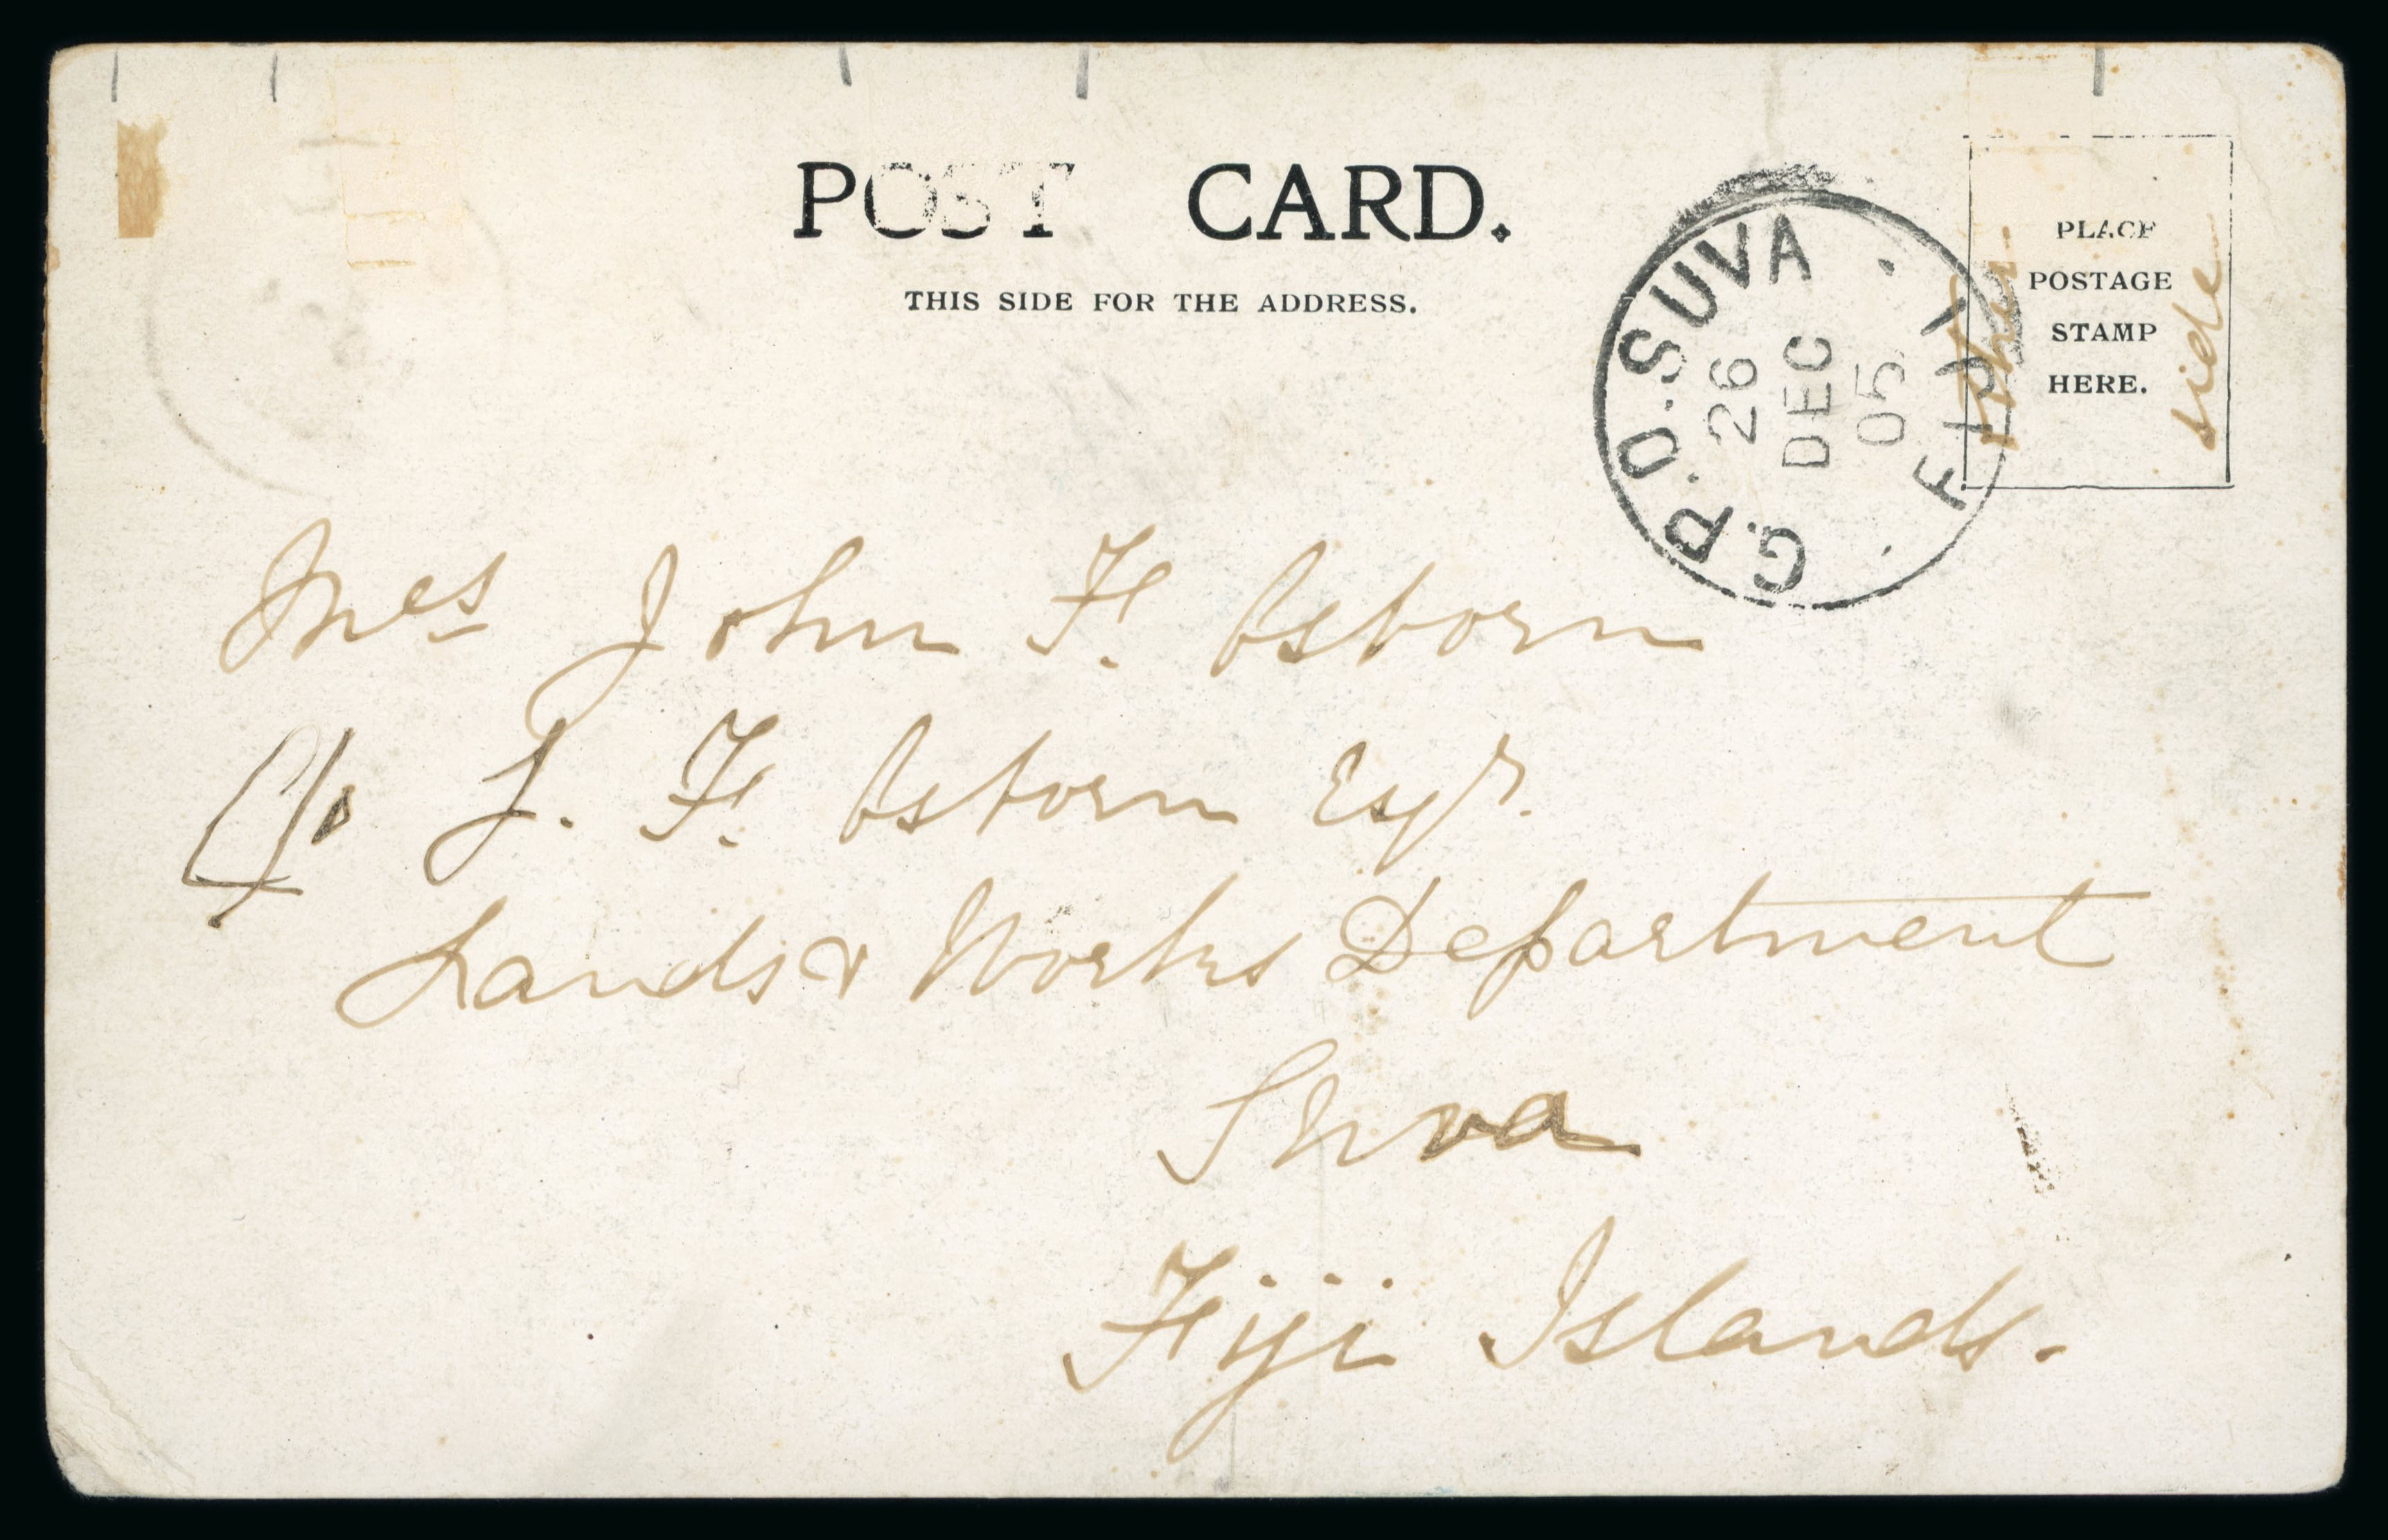 POST CARD.
THIS SIDE FOR THE ADDRESS.
G.P.O. SUVA . FIJI .
26
DEC
05
PLACE
POSTAGE
STAMP
HERE.
other
side
Mrs John F. Osborn
c/o J. F. Osborn Esqr.
Lands & Works Department
Suva
Fiji Islands.